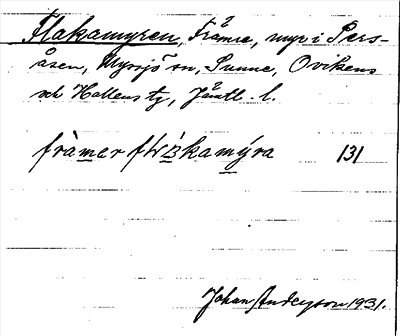 Flakamyren, Främre, myr i Pers-
åsen, Myssjö sn, Sunne, Ovikens
och Hallens tg, Jämtl. l.
främer kamýra 131
Johan Anderson 1931.